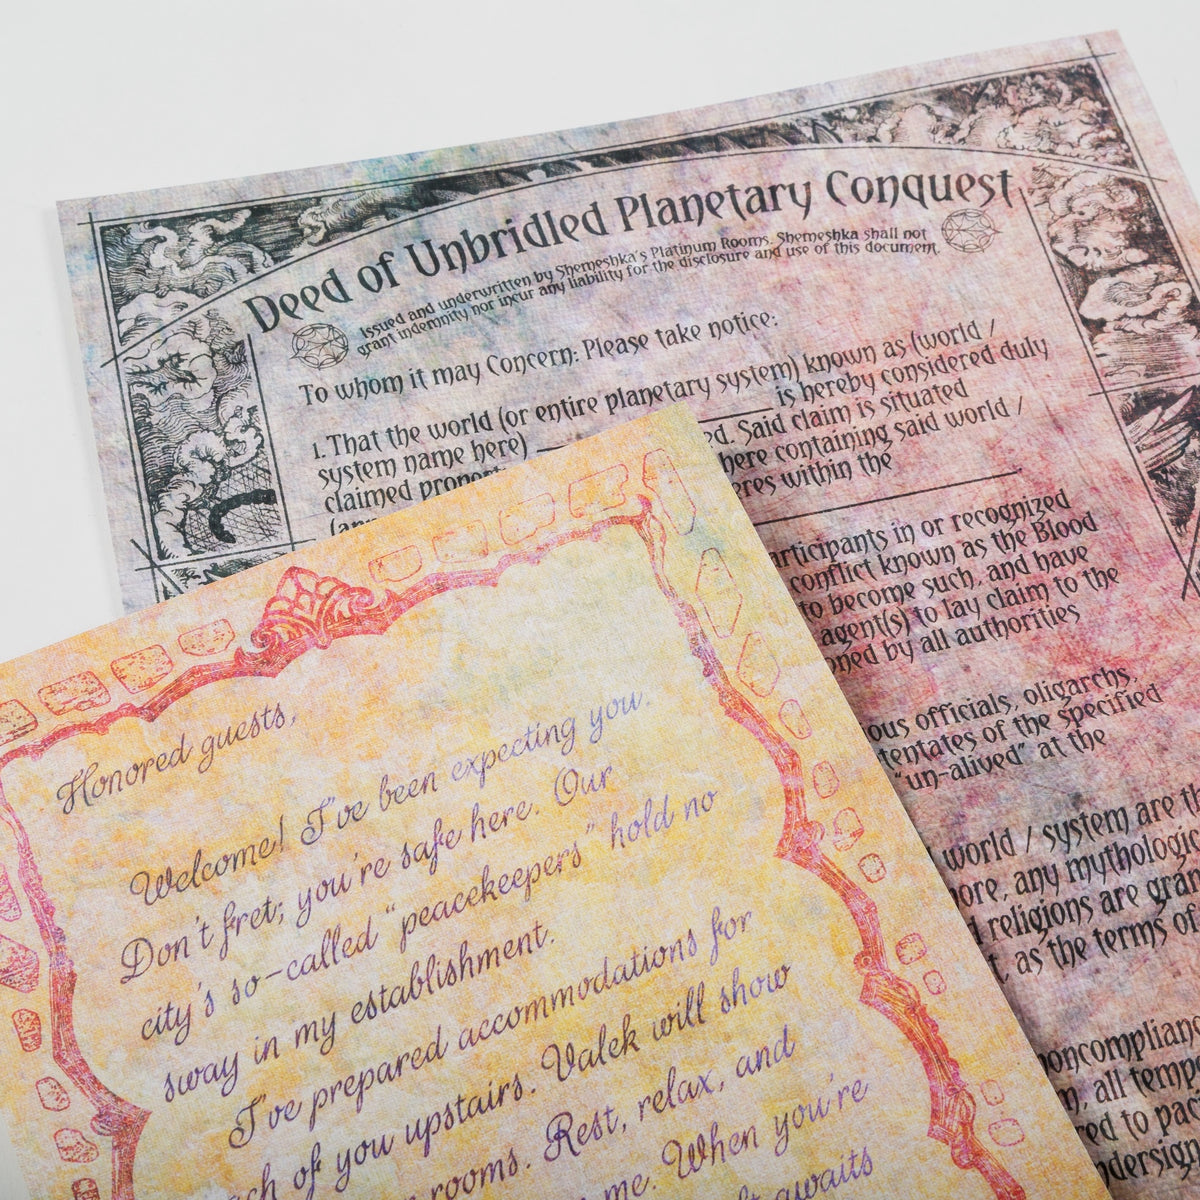 Deed of Unbridled Planetary Conquest
Issued and underwritten by Shemeshka's Platinum Rooms. Shemeshka shall not
grant indemnity nor incur any liability for the disclosure and use of this document.
To whom it may Concern: Please take notice:
1. That the world (or entire planetary system) known as (world /
system name here) is hereby considered duly
claimed ed. Said claim is situated
here containing said world /
eres within the
articipants in or recognized
conflict known as the Blood
to become such, and have
agent(s) to lay claim to the
oned by all authorities
ous officials, oligarchs,
tentates of the specified
"un-alived" at the
world / system are th
ore, any mythologic
religions are gran
as the terms of
noncomplianc
, all temp
red to pac
ndersign
Honored guests,
Welcome! I've been expecting you.
Don't fret; you're safe here. Our
city's so-called "peacekeepers" hold no
sway in my establishment.
I've prepared accommodations for
ach of you upstairs. Valek will show
rooms. Rest, relax, and
me. When you're
awaits